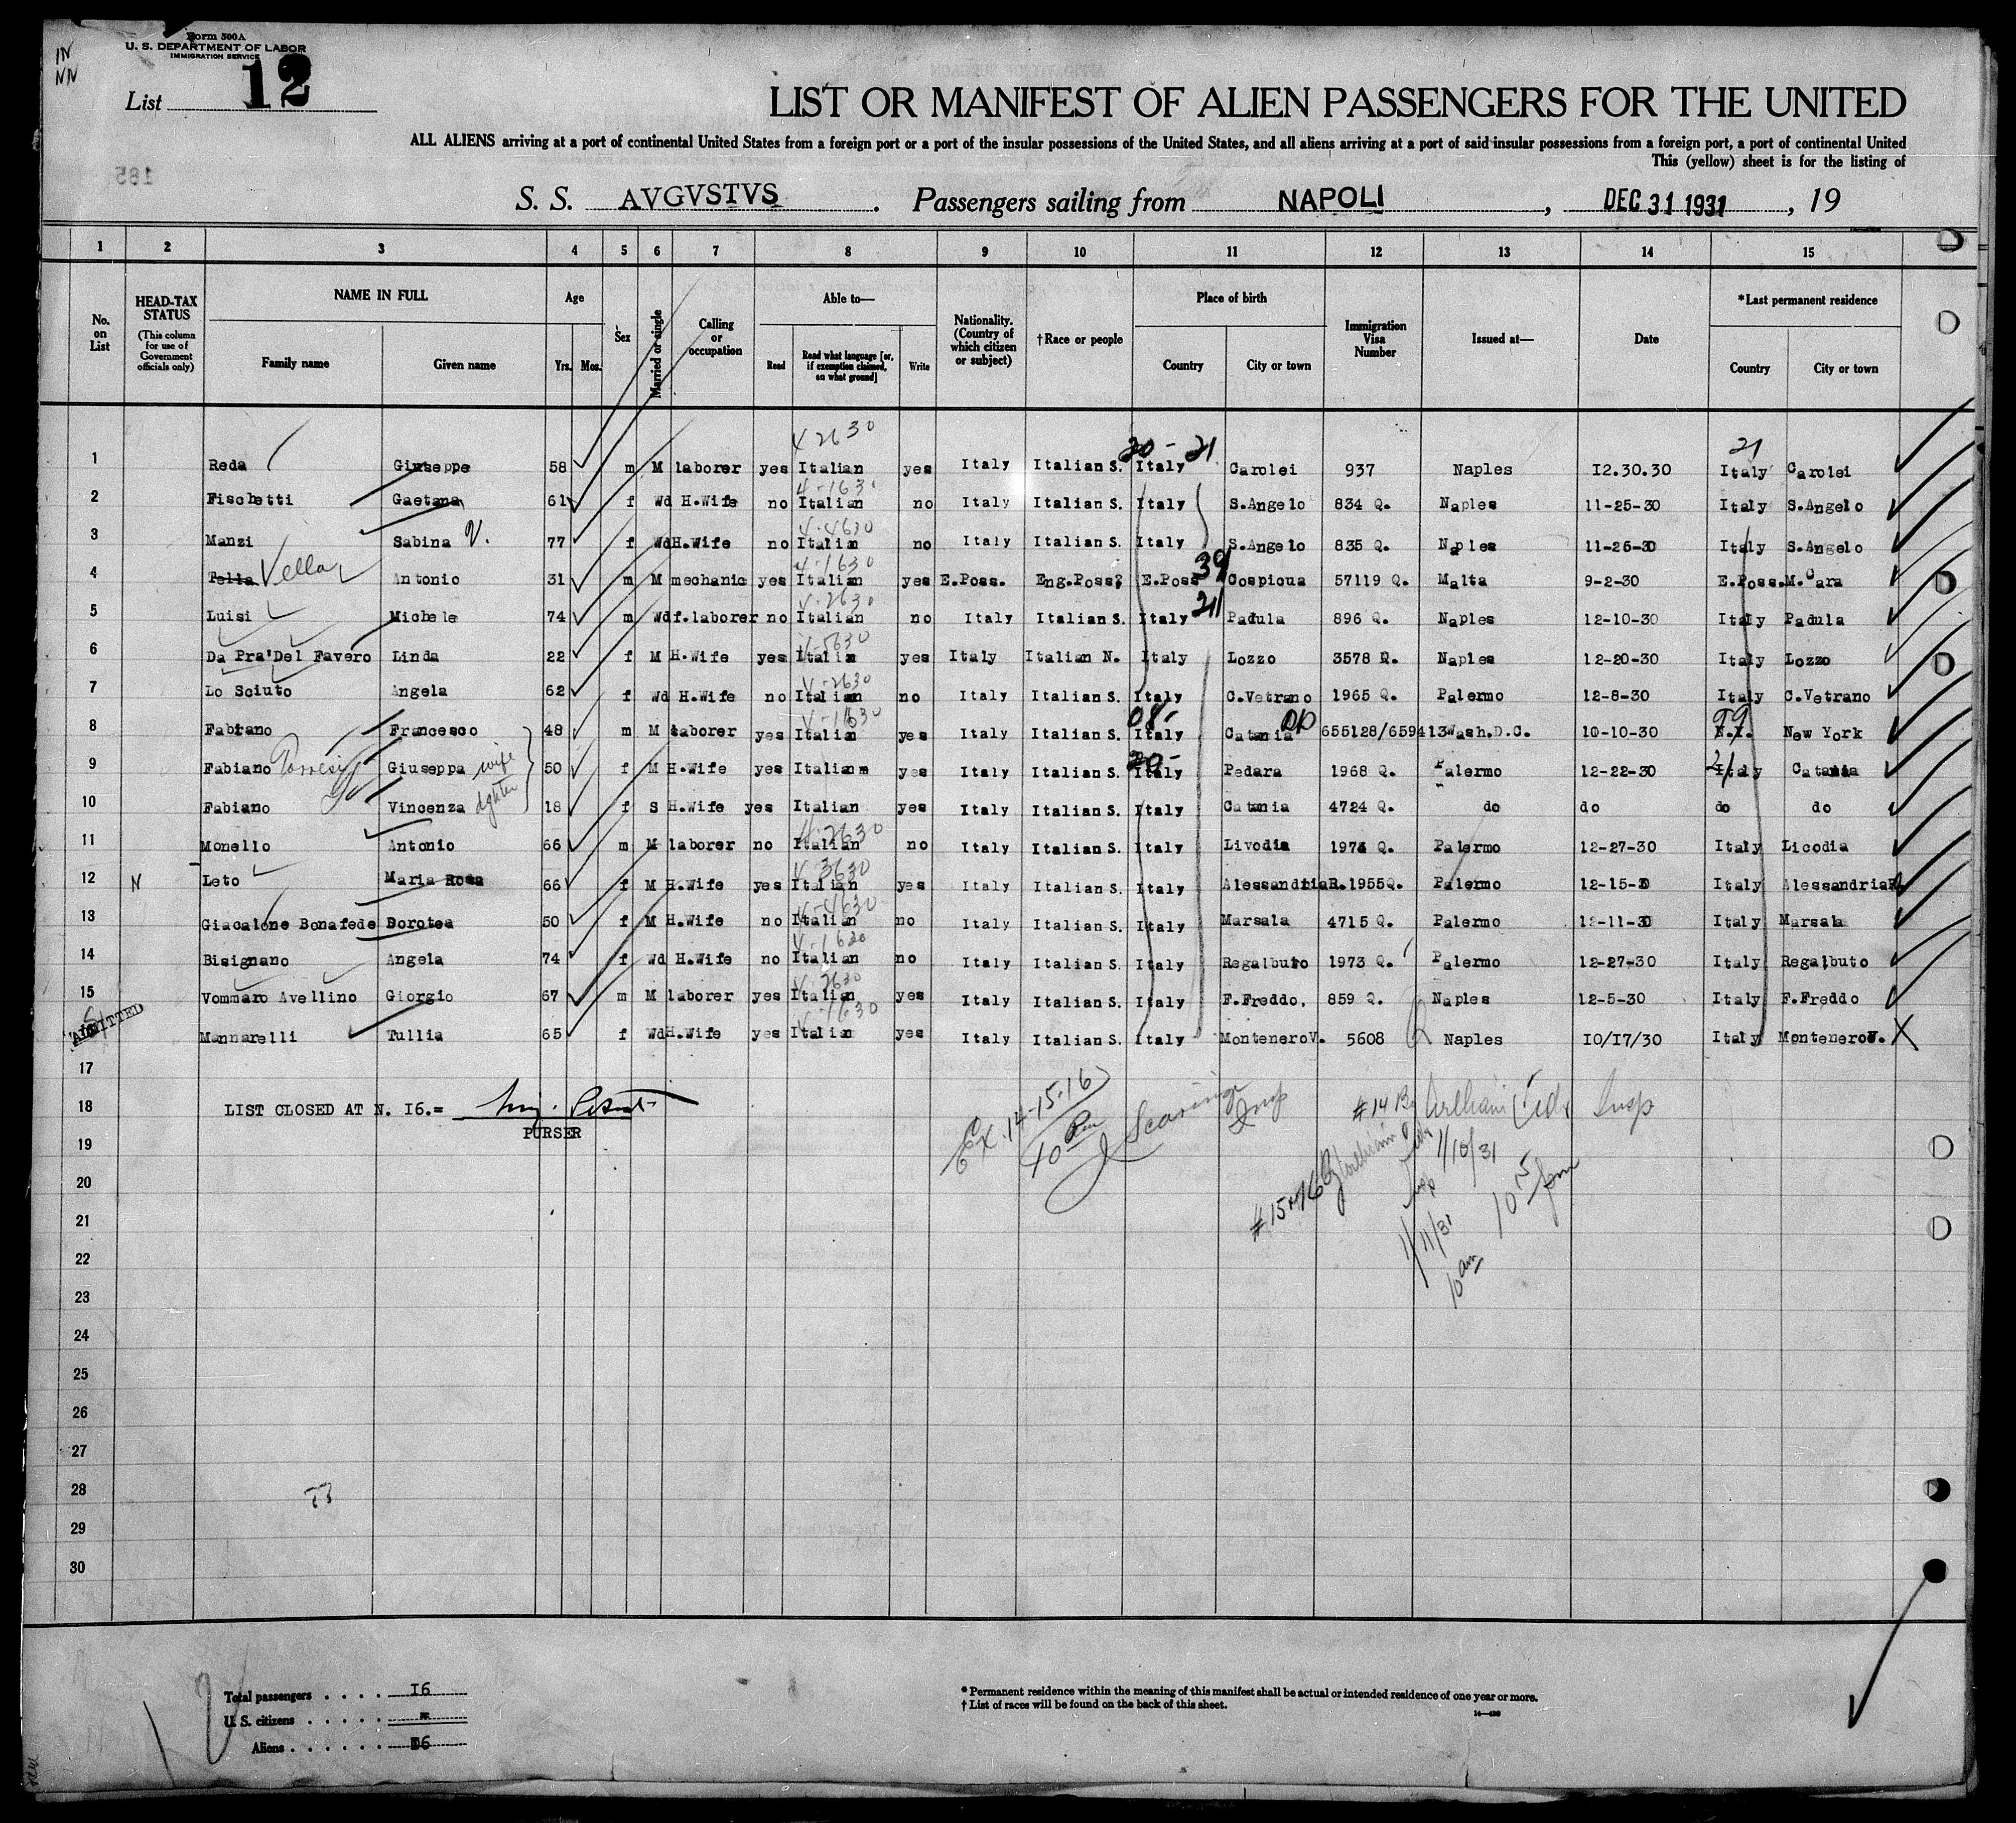 IN
NN
Form 500A
U. S. DEPARTMENT OF LABOR
IMMIGRATION SERVICE
List 12
185
LIST OR MANIFEST OF ALIEN PASSENGERS FOR THE UNITED
ALL ALIENS arriving at a port of continental United States from a foreign port or a port of the insular possessions of the United States, and all aliens arriving at a port of said insular possessions from a foreign port, a port of continental United
This (yellow) sheet is for the listing of
S. S. AVGVSTVS . Passengers sailing from NAPOLI , DEC 31 1931 , 19
1 2 3 4 5 6 7 8 9 10 11 12 13 14 15
No. on List
HEAD-TAX STATUS (This column for use of Government officials only)
NAME IN FULL Family name Given name
Age Yrs. Mos.
Sex
Married or single
Calling or occupation
Able to— Read Read what language [or, if exemption claimed, on what ground] Write
Nationality. (Country of which citizen or subject)
†Race or people
Place of birth Country City or town
Immigration Visa Number
Issued at—
Date
*Last permanent residence Country City or town
4 2630 20- 21 21
1 Reda Giuseppe 58 m M laborer yes Italian yes Italy Italian S. Italy Carolei 937 Naples I2.30.30 Italy Carolei
4-1630
2 Fischetti Gaetana 61 f Wd H.Wife no Italian no Italy Italian S. Italy S.Angelo 834 Q. Naples 11-25-30 Italy S.Angelo
4-4630
3 Manzi Sabina V. 77 f Wd H.Wife no Italian no Italy Italian S. Italy S.Angelo 835 Q. Naples 11-26-30 Italy S.Angelo
4-1630 39
4 Tella Vella Antonio 31 m M mechanic yes Italian yes E.Poss. Eng.Poss. E.Poss Cospicua 57119 Q. Malta 9-2-30 E.Poss. M.Cara
4-2630 21
5 Luisi Michele 74 m Wd f.laborer no Italian no Italy Italian S. Italy Padula 896 Q. Naples 12-10-30 Italy Padula
4-5630
6 Da Pra'Del Favero Linda 22 f M H.Wife yes Italian yes Italy Italian N. Italy Lozzo 3578 Q. Naples 12-20-30 Italy Lozzo
4-2630
7 Lo Sciuto Angela 62 f Wd H.Wife no Italian no Italy Italian S. Italy C.Vetrano 1965 Q. Palermo 12-8-30 Italy C.Vetrano
4-1630 08- 99
8 Fabiano Francesco 48 m M laborer yes Italian yes Italy Italian S. Italy Catania 655128/659413 Wash.D.C. 10-10-30 N.Y. New York
20- 21
9 Fabiano Giuseppa wife 50 f M H.Wife yes Italian yes Italy Italian S. Italy Pedara 1968 Q. Palermo 12-22-30 Italy Catania
10 Fabiano Vincenza dghter 18 f S H.Wife yes Italian yes Italy Italian S. Italy Catania 4724 Q. do do do do
4-2630
11 Monello Antonio 66 m M laborer no Italian no Italy Italian S. Italy Livodia 1974 Q. Palermo 12-27-30 Italy Licodia
4-3630
12 N Leto Maria Rosa 66 f M H.Wife yes Italian yes Italy Italian S. Italy AlessandriaR. 1955Q. Palermo 12-15-30 Italy AlessandriaR.
4-4630
13 Giacalone Bonafede Dorotea 50 f M H.Wife no Italian no Italy Italian S. Italy Marsala 4715 Q. Palermo 12-11-30 Italy Marsala
4-1630
14 Bisignano Angela 74 f Wd H.Wife no Italian no Italy Italian S. Italy Regalbuto 1973 Q. Palermo 12-27-30 Italy Regalbuto
4-2630
15 Vommaro Avellino Giorgio 67 m M laborer yes Italian yes Italy Italian S. Italy F.Freddo. 859 Q. Naples 12-5-30 Italy F.Freddo
4-1630
ADMITTED Mannarelli Tullia 65 f Wd H.Wife yes Italian yes Italy Italian S. Italy MonteneroV. 5608 Naples IO/I7/30 Italy MonteneroV. X
17
18 LIST CLOSED AT N. I6.=
PURSER
Ex. 14-15-16
10
Insp
#14 By Insp
1/10/31
10 15 pm
#15
1/11/31
10 am
19
20
21
22
23
24
25
26
27
28
29
30
Total passengers . . . . I6
U. S. citizens . . . . . =
Aliens . . . . . . I6
* Permanent residence within the meaning of this manifest shall be actual or intended residence of one year or more.
† List of races will be found on the back of this sheet.